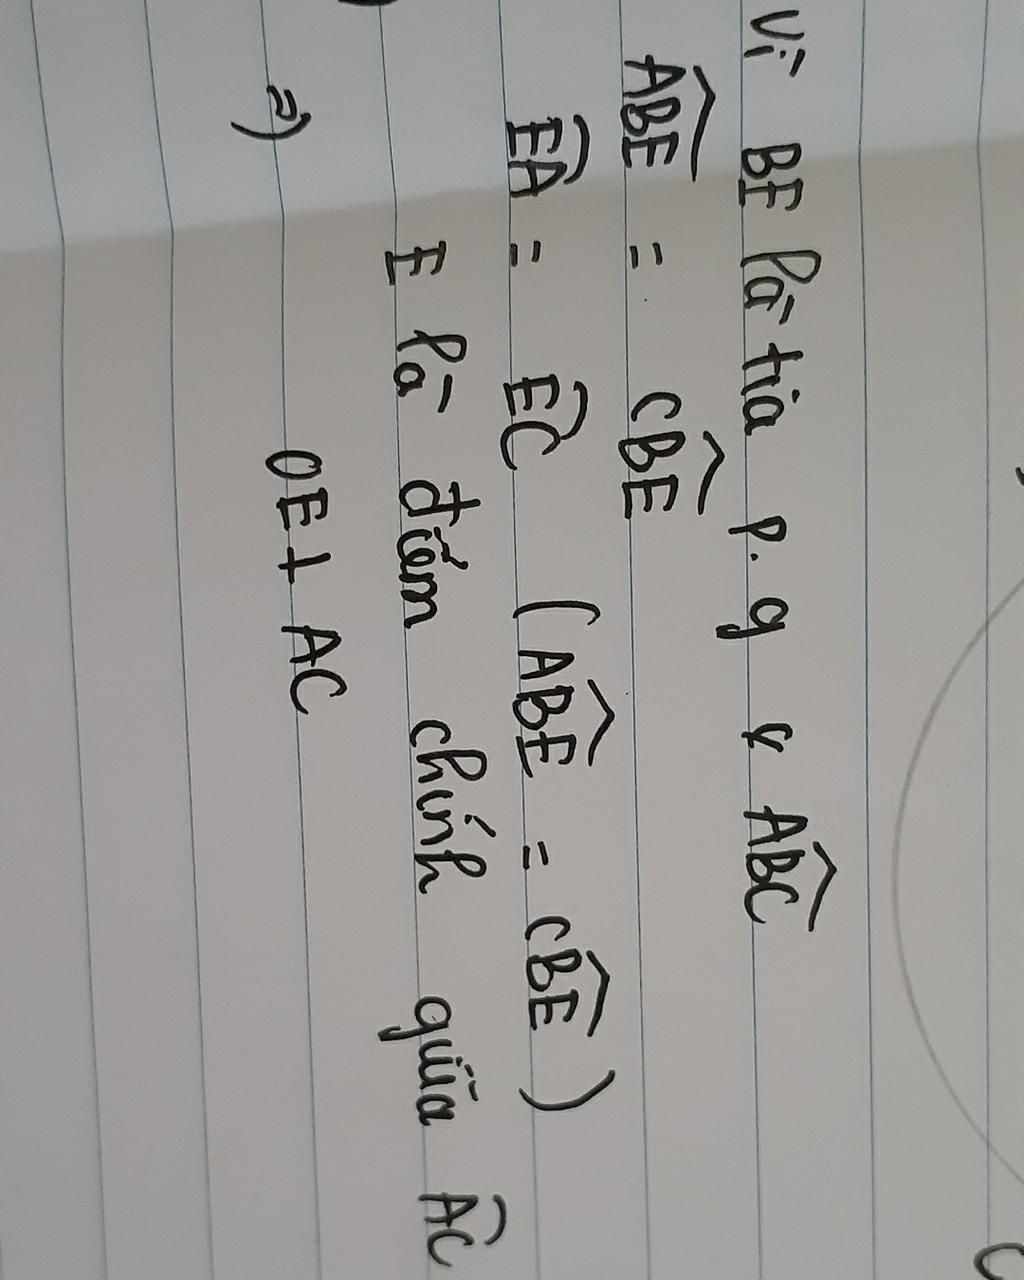 Vì BE là tia p.g ∢ \(\widehat{ABC}\)
\(\widehat{ABE}\) = \(\widehat{CBE}\)
\(\overset{\frown}{EA}\) = \(\overset{\frown}{EC}\) (\(\widehat{ABE}\) = \(\widehat{CBE}\))
E là điểm chính giữa \(\overset{\frown}{AC}\)
=) OE ⊥ AC